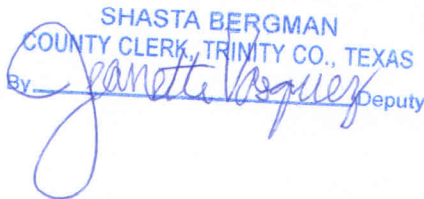 SHASTA BERGMAN
COUNTY CLERK, TRINITY CO., TEXAS
By Jeanette Vasquez Deputy